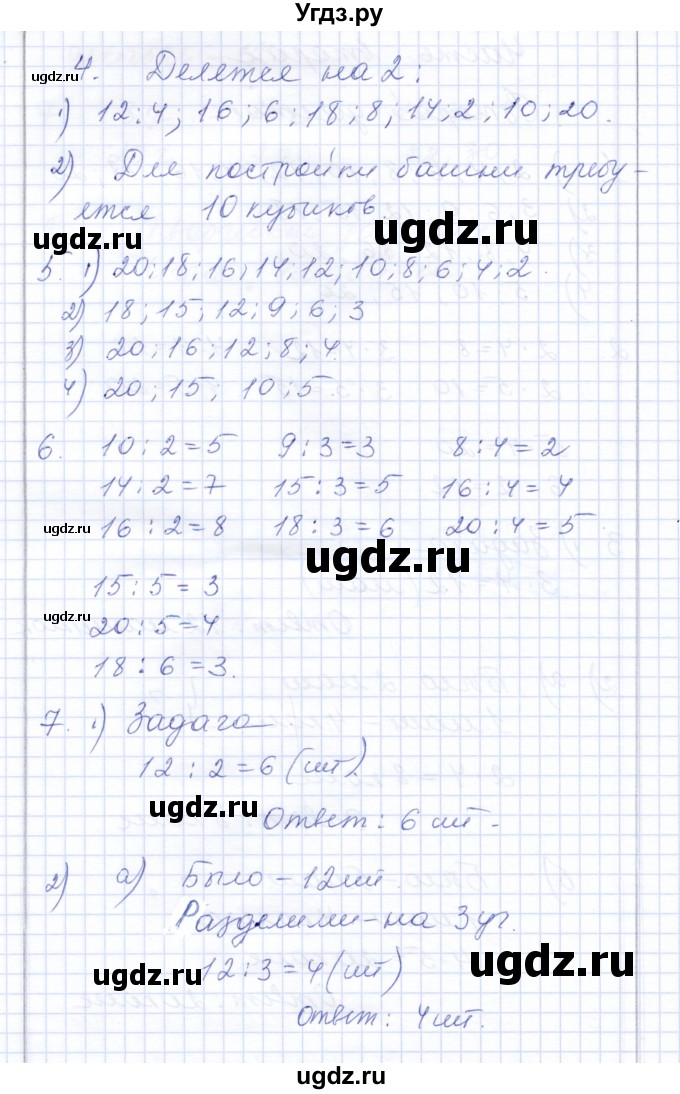 Угдз.ру
4. Делятся на 2:
1) 12; 4; 16; 6; 18; 8; 14; 2; 10; 20.
2) Для постройки башни требу-
ется 10 кубиков.
5. 1) 20; 18; 16; 14; 12; 10; 8; 6; 4; 2.
2) 18; 15; 12; 9; 6; 3
3) 20; 16; 12; 8; 4.
4) 20; 15; 10; 5.
6. 10 : 2 = 5 9 : 3 = 3 8 : 4 = 2
14 : 2 = 7 15 : 3 = 5 16 : 4 = 4
16 : 2 = 8 18 : 3 = 6 20 : 4 = 5
15 : 5 = 3
20 : 5 = 4
18 : 6 = 3.
7. 1) Задача
12 : 2 = 6 (шт).
Ответ: 6 шт.
2) а) Было – 12 шт.
Разделили – на 3 уч.
12 : 3 = 4 (шт)
Ответ: 4 шт.
ugdz.ru
ugdz.ru
ugdz.ru
ugdz.ru
ugdz.ru
ugdz.ru
ugdz.ru
ugdz.ru
ugdz.ru
ugdz.ru
ugdz.ru